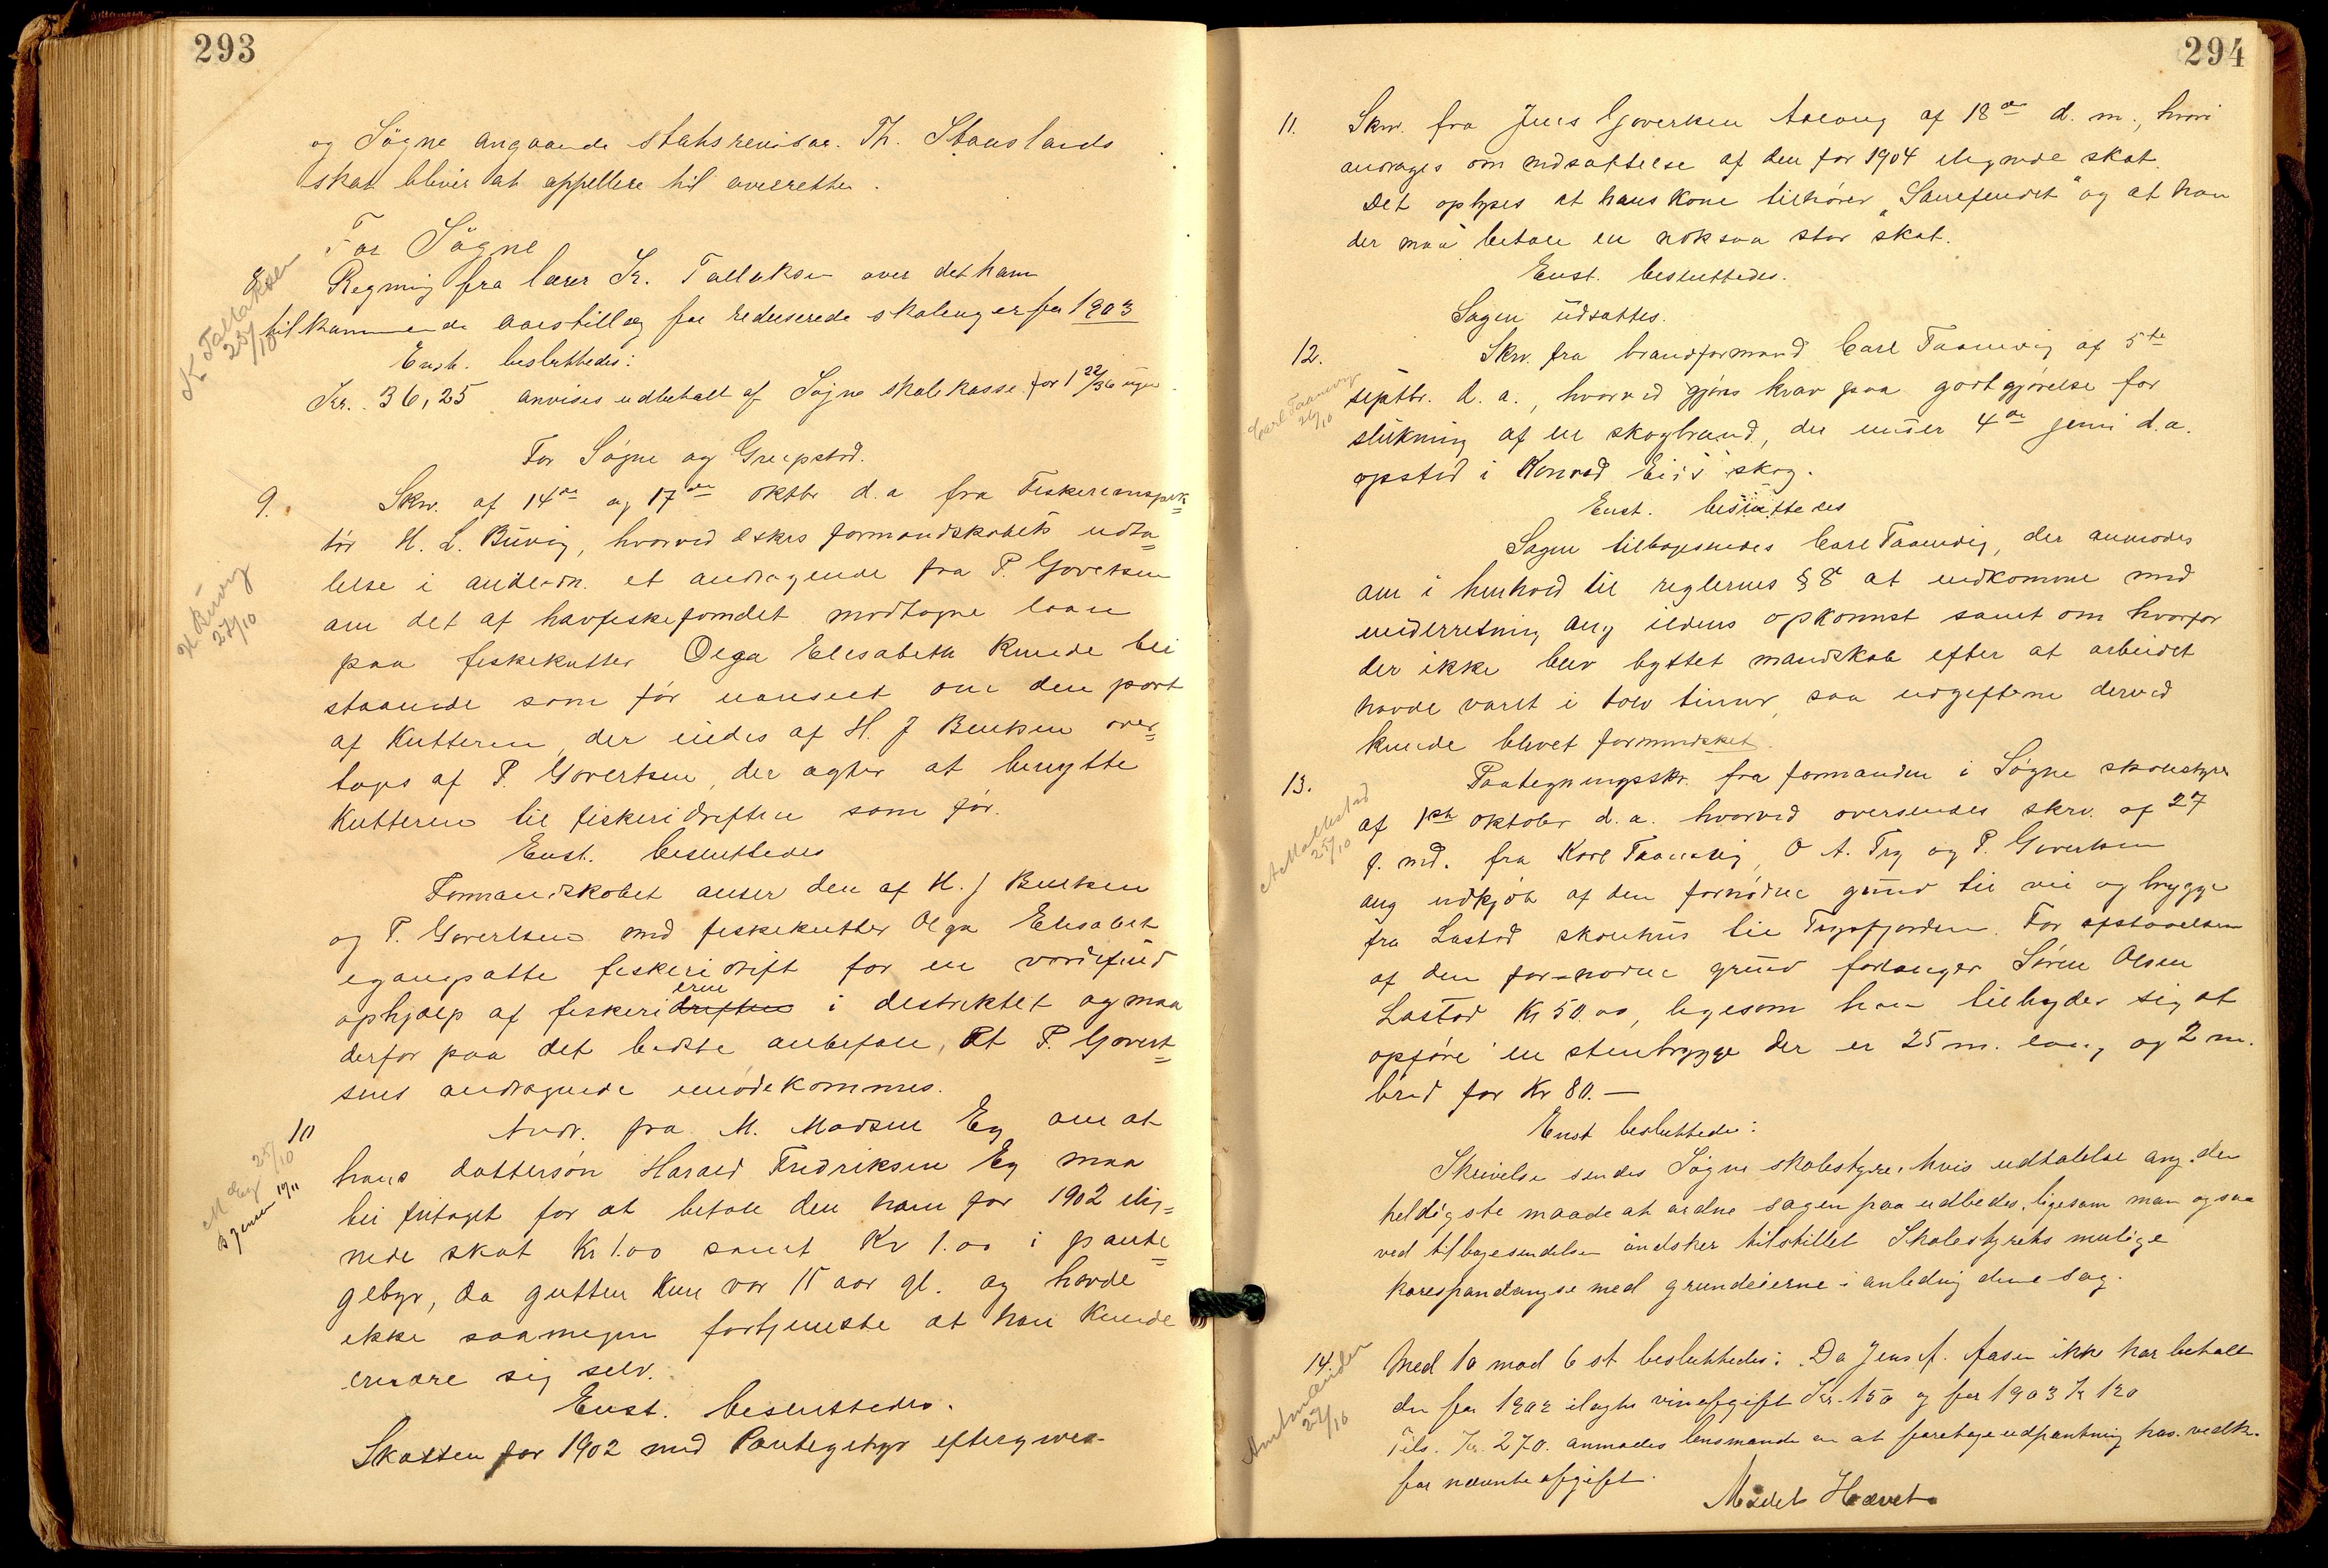 293
og Søgne angaaende statsrevisor Th. Stauslands
skat bliver at appellere til overretten.
For Søgne
8. Regning fra lærer K. Tallaksen over det ham
tilkommende aarstillæg for reduserede skoleuger for 1903
K Tallaksen 25/10
Enst. besluttedes:
Kr. 36,25 anvises udbetalt af Søgne skolekasse for 1 22/36 uger
For Søgne og Greipstad.
9. Skr. af 14de og 17de oktbr d.a fra Fiskeriinspek=
tør H. L. Buvig, hvorved æskes formandskabets udta=
lelse i andledn. et andragende fra P. Govertsen
H Buvig 27/10
om det af havfiskefondet modtagne laan
paa fiskekutter Olga Elisabeth kunde bli
staaende som før uanseet om den part
af Kutteren, der eiedes af H. J Bentsen over=
tages af P. Govertsen, der agter at benytte
Kutteren til fiskeridriften som før.
Enst. besluttedes
Formandskabet anser den af H. J Bentsen
og P. Govertsen med fiskekutter Olga Elisabet
igangsatte fiskeridrift for en værdifuld
ophjælp af fiskeridriften erne i destriktet og maa
derfor paa det bedste anbefale, At P. Govert=
sens andragende imødekommes.
10 Andr. fra M. Madsen Eg om at
M Eg 25/10
B Jensen 19/11
hans dattersøn Harald Fredriksen Eg maa
bli fritaget for at betale den ham for 1902 ilig=
nede skat Kr 1.00 samt Kr 1.00 i pante=
gebyr, da gutten kun var 15 aar gl. og havde
ikke saamegen fortjeneste at han kunde
ernære sig selv.
Enst. besluttedes.
Skatten for 1902 med Pantegebyr eftergives
294
11. Skr. fra Jens Govertsen Aalong af 18de d. m., hvori
andrages om nedsættelse af den for 1904 ilignede skat.
Det oplyses at hans kone tilhører "Sanefundet" og at han
der maa betale en noksaa stor skat.
Enst. besluttedes.
Sagen udsættes.
12. Skr. fra brandformand Carl Taanevig af 5te
Carl Taanevig 26/10
septbr. d. a., hvorved gjøres krav paa godtgjørelse for
slukning af en skogbrand, der under 4de juni d.a.
opstod i Konrad Eies skog.
Enst. besluttedes
Sagen tilbagesendes Carl Taanevig, der anmodes
om i henhold til reglernes § 8 at indkomme med
underretning ang ildens opkomst samt om hvorfor
der ikke blev byttet mandskab efter at arbeidet
havde varet i tolv timer, saa udgifterne derved
kunde blevet formindsket.
13. Paategningsskr. fra formanden i Søgne skolestyre
A Mollestad 25/10
af 1st oktober d.a. hvorved oversendes skr. af 27
f. md. fra Karl Taanevig, O A. Try og P. Govertsen
ang indkjøb af den fornødne grund til vei og brygge
fra Lastad skolehus til Trysfjorden. For afstaaelsen
af den for-nødne grund forlanger Søren Olsen
Lastad Kr 50.00, ligesom han tilbyder sig at
opføre en stenbrygge der er 25 m. lang og 2 m.
bred for Kr 80.—
Enst besluttedes:
Skrivelse sendes Søgne skolestyre, hvis udtalelse ang. den
heldigste maade at ordne sagen paa udbedes, ligesom man ogsaa
ved tilbagesendelsen ønsker tilstillet Skolestyrets mulige
korespondangse med grundeierne i anledning denne sag.
14. Med 10 mod 6 st besluttedes: Da Jens A. Aasen ikke har betalt
Amtmanden 27/10
den for 1902 ilagte vinafgift Kr. 150 og for 1903 Kr 120
Tils. Kr. 270. anmodes lensmanden om at foretage udpantning hos vedk.
for nævnte afgift.
Mødet Hævet.